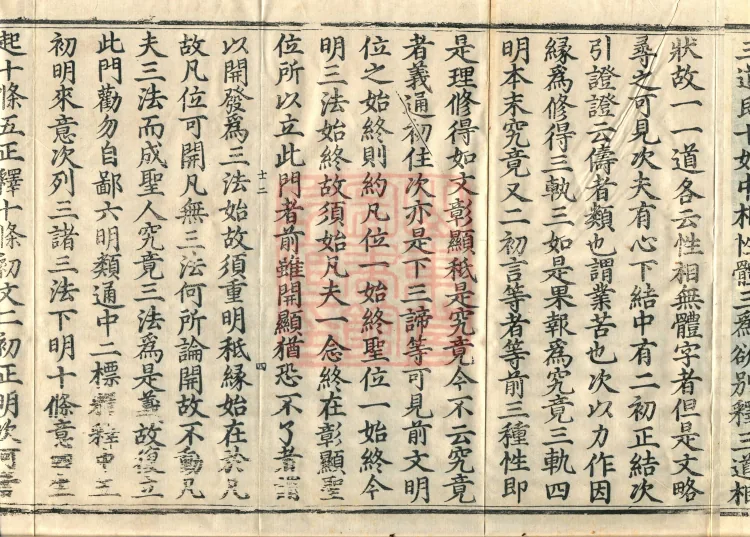 三道民十如中相性體三爲欲別釋三道相
狀故一一道各云性相無體字者但是文略
尋之可見次夫有心下結中有二初正結次
引證證云儔者類也謂業苦也次以力作因
緣爲修得三軌三如是果報爲究竟三軌四
明本末究竟又二初言等者等前三種性即
是理修得如文彰顯秖是究竟今不云究竟
者義通初住次亦是下三諦等可見前文明
位之始終則約凡位一始終聖位一始終今
明三法始終故須始凡夫一念終在彰顯聖
位所以立此門者前雖開顯猶恐不了者謂
十二
四
以開發爲三法始故須重明秖緣始在於凡
故凡位可開凡無三法何所論開故不動凡
夫三法而成聖人究竟三法爲是義故復立
此門勸勿自鄙六明類通中二標釋釋中三
初明來意次列三諸三法下明十條意
起十條五正釋十條初文二初正明次